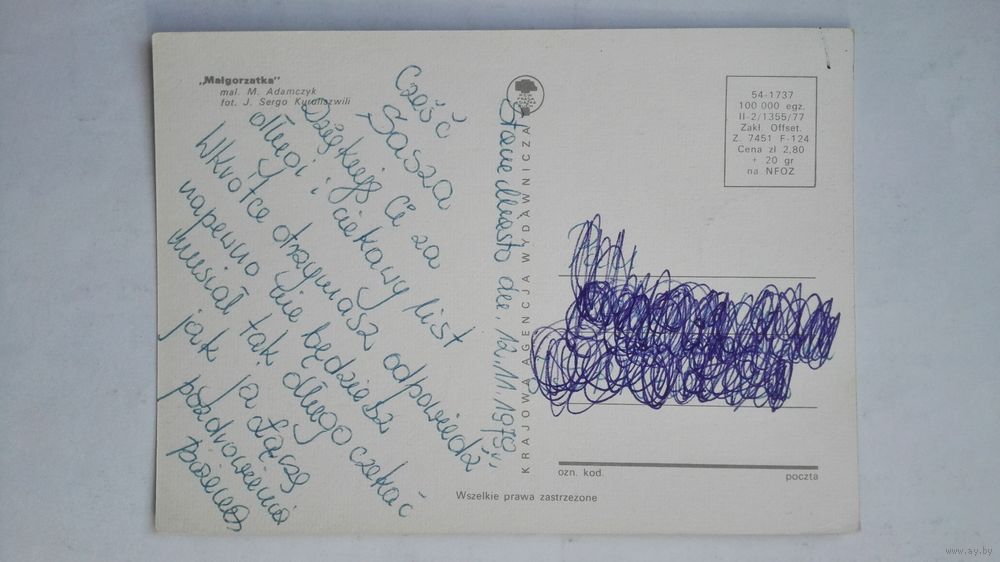 „Małgorzatka"
mal. M. Adamczyk
fot. J. Sergo Kuruliszwili
Cześć
Sasza
Dziękuję Ci za
długi i ciekawy list
Wkrótce otrzymasz odpowiedź
napewno nie będziesz
musiał tak długo czekać
jak ja Łączę
pozdrowienia
Stare Miasto dn. 12.11.1979r.
KRAJOWA AGENCJA WYDAWNICZA
54-1737
100 000 egz.
II-2/1355/77
Zakł. Offset.
Z. 7451 F-124
Cena zł 2,80
+ 20 gr
na NFOZ
ozn. kod.
poczta
Wszelkie prawa zastrzeżone
www.ay.by